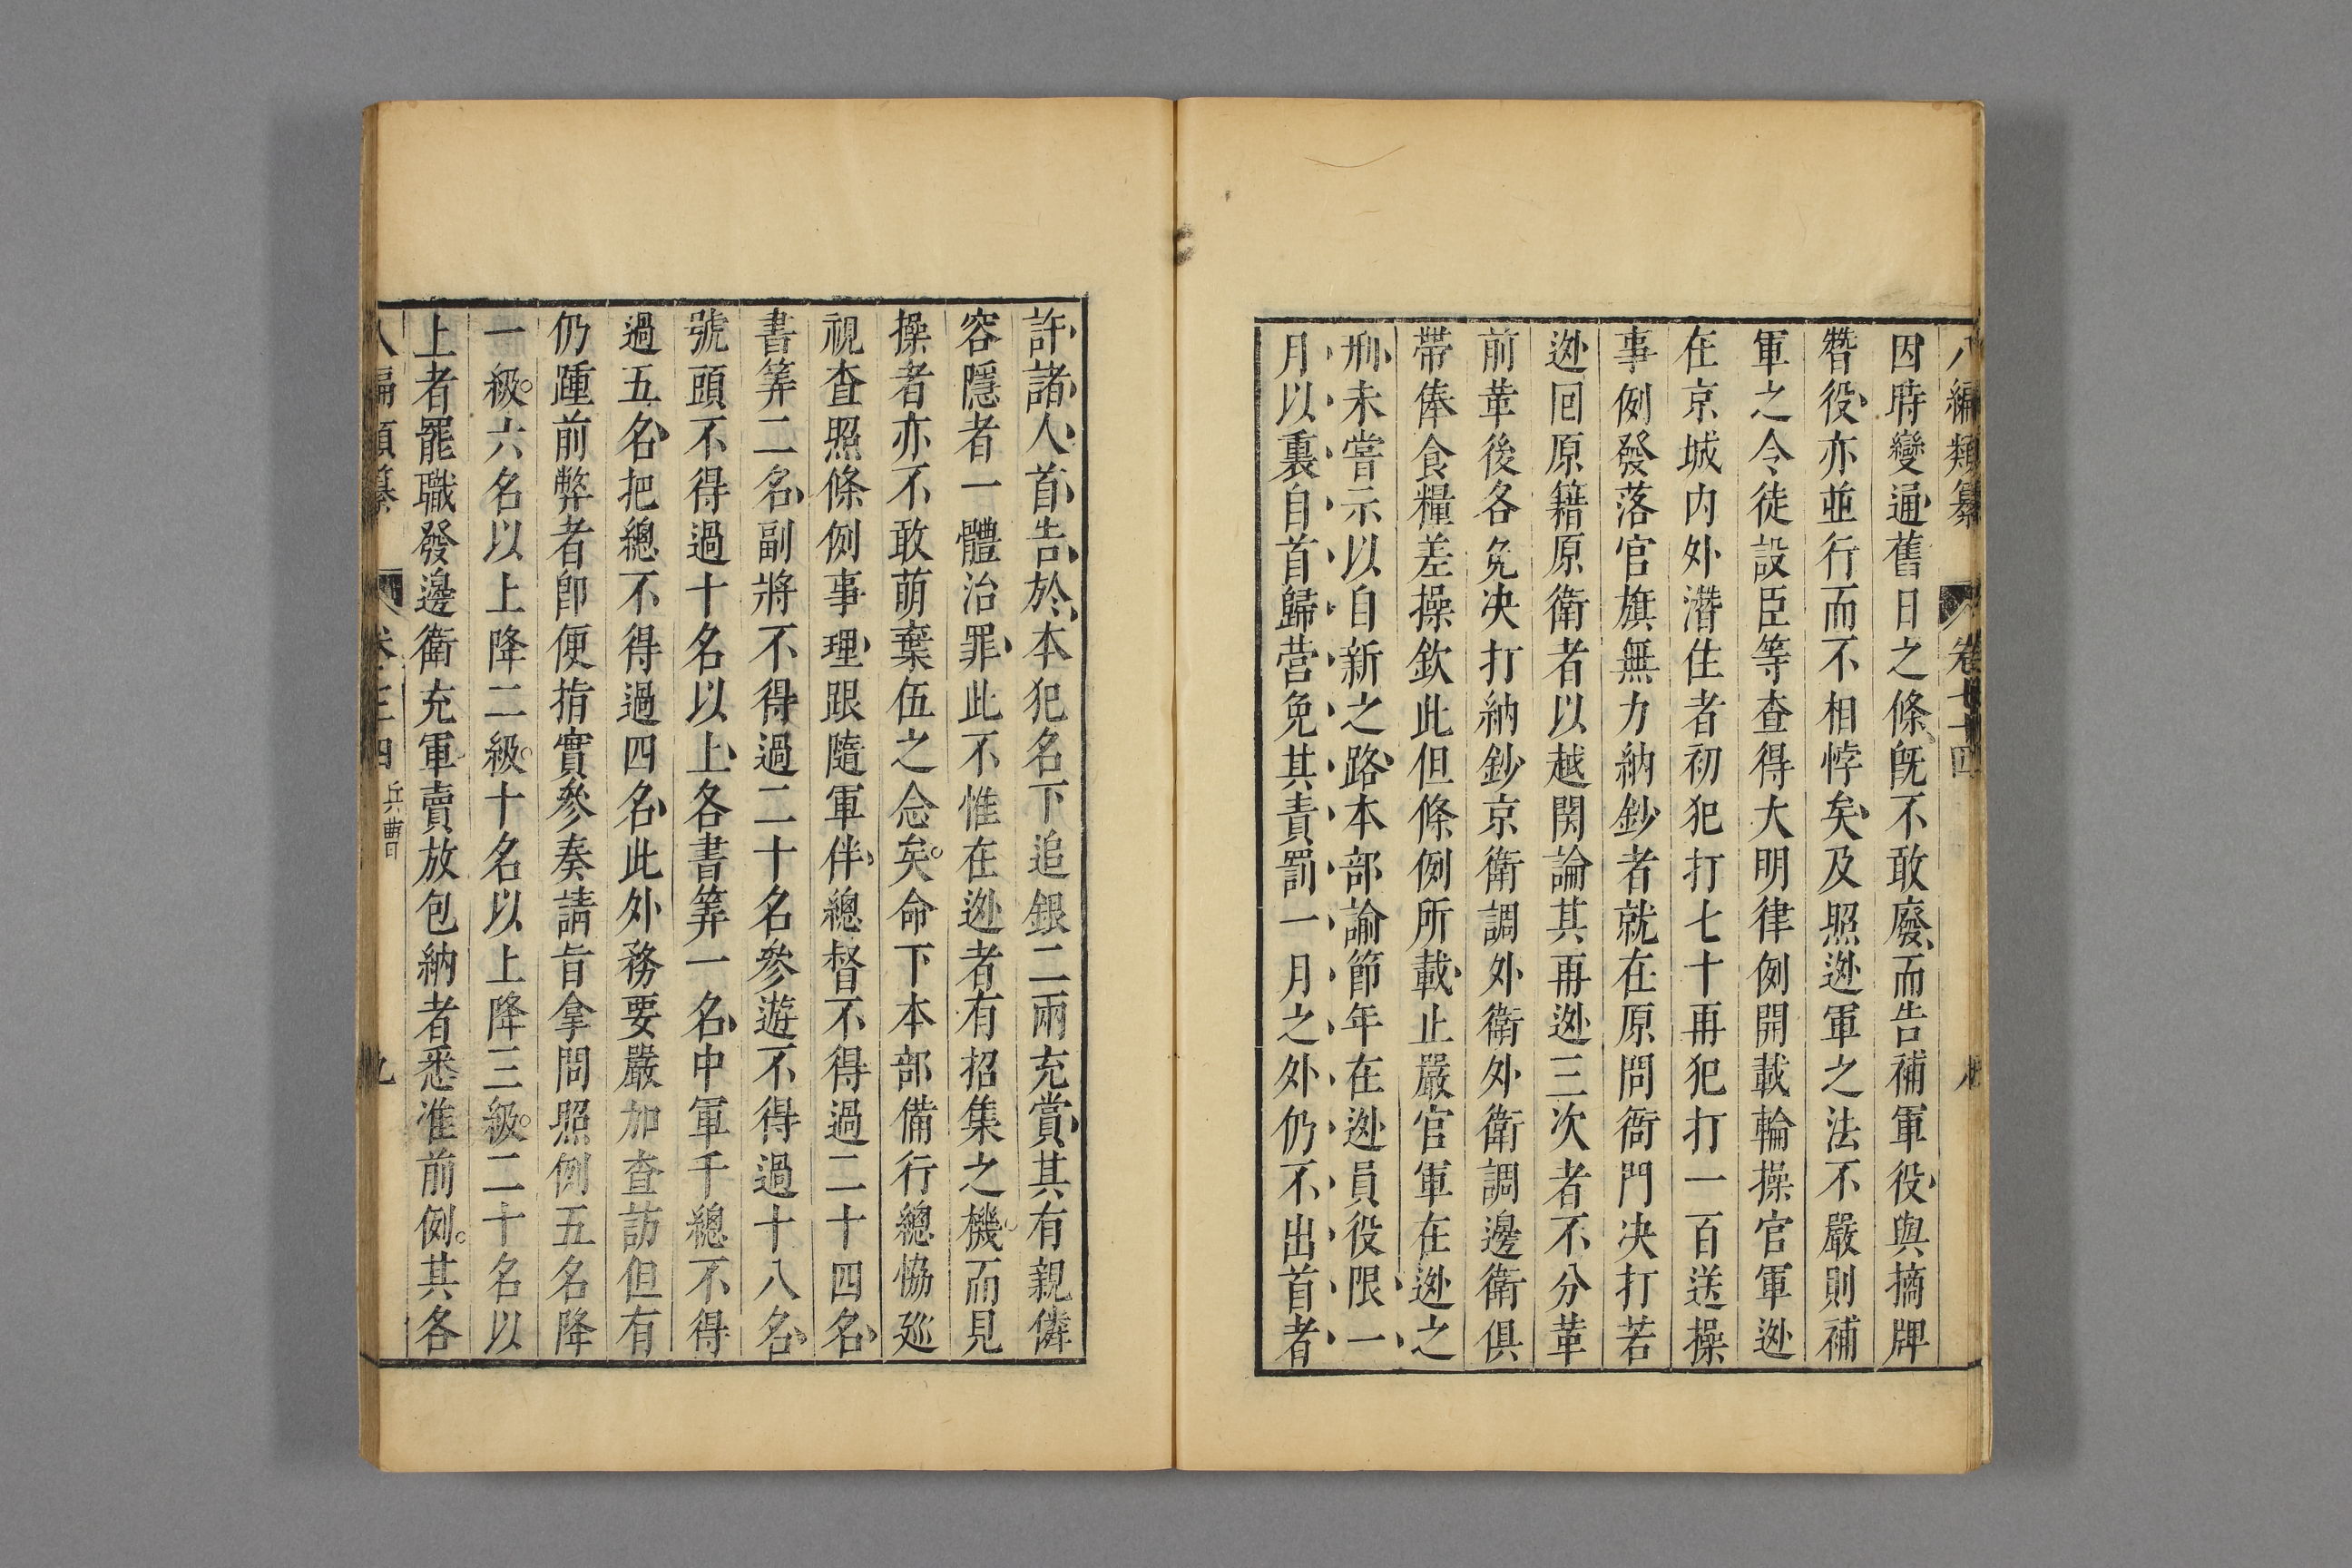 八編類纂 卷七十四
因時變通舊日之條旣不敢廢而告補軍役與摘牌
替役亦並行而不相悖矣及照迯軍之法不嚴則補
軍之令徒設臣等查得大明律例開載輪操官軍迯
在京城内外潛住者初犯打七十再犯打一百送操
事例發落官旗無力納鈔者就在原問衙門决打若
迯回原籍原衛者以越関論其再迯三次者不分革
前革後各免决打納鈔京衛調外衛外衛調邊衛俱
帶俸食糧差操欽此但條例所載止嚴官軍在迯之
刑未嘗示以自新之路本部諭節年在迯員役限一
月以裏自首歸营免其責罰一月之外仍不出首者
許諸人首告於本犯名下追銀二兩充賞其有親隣
容隱者一體治罪此不惟在迯者有招集之機而見
操者亦不敢萌棄伍之念矣命下本部備行總協廵
視查照條例事理跟隨軍伴總督不得過二十四名
書筭二名副將不得過二十名參遊不得過十八名
號頭不得過十名以上各書筭一名中軍千總不得
過五名把總不得過四名此外務要嚴加查訪但有
仍踵前弊者卽便指實參奏請旨拿問照例五名降
一級六名以上降二級十名以上降三級二十名以
上者罷職發邊衛充軍賣放包納者悉准前例其各
兵曹 九